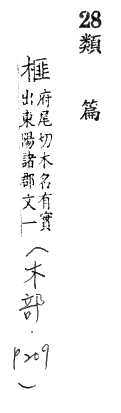 28類
篇
榧府尾切木名有實
出東陽諸郡文一
(木部.
p209)